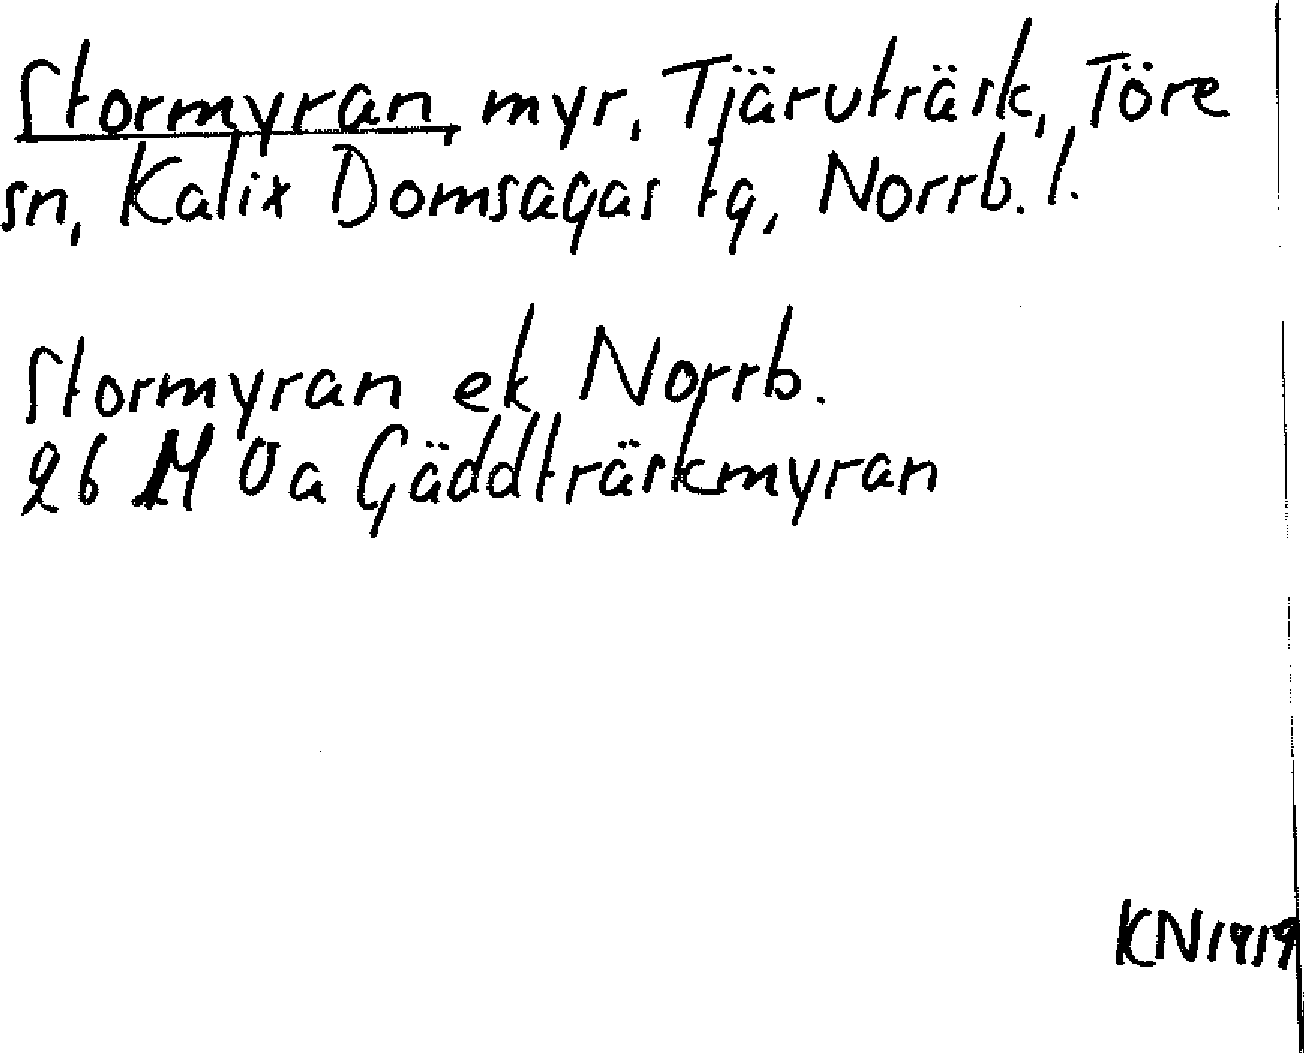 Stormyran, myr, Tjäruträsk, Töre
sn, Kalix Domsagas tg, Norrb. l.
Stormyran ek Norrb.
26 M Ua Gäddträskmyran
KN1919